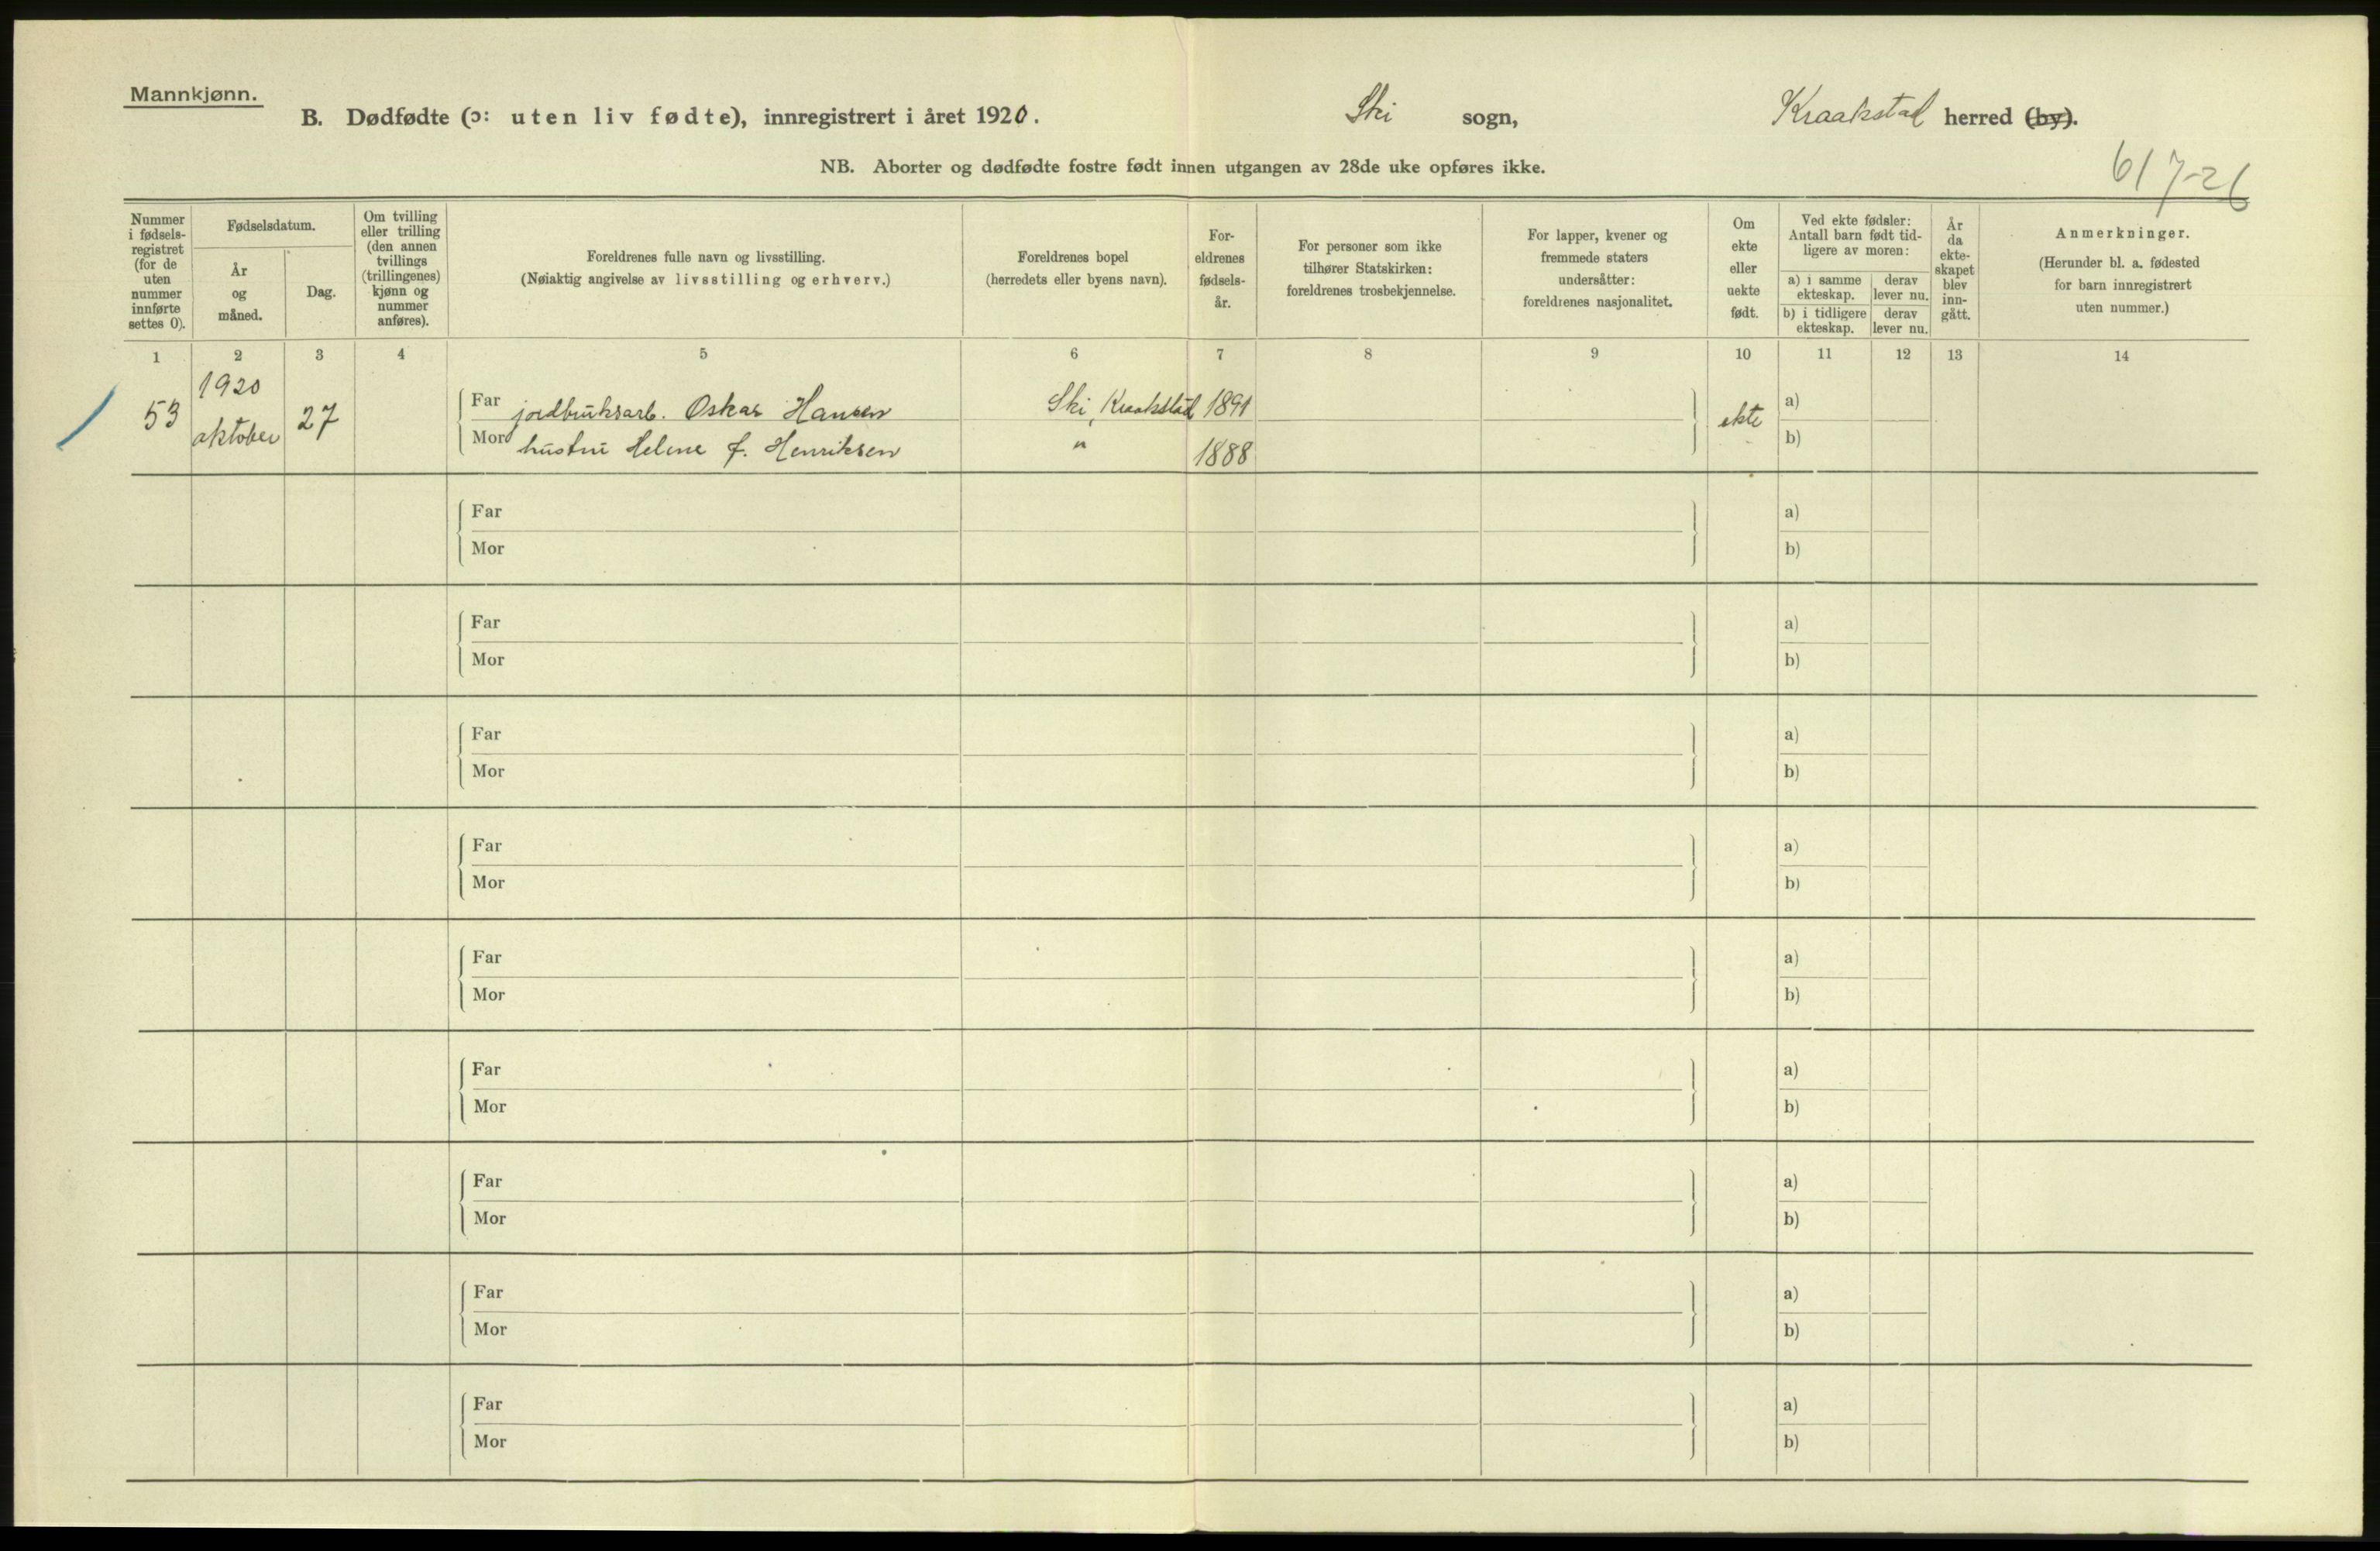 Mannkjønn.
B. Dødfødte (ɔ: uten liv fødte), innregistrert i året 1920. Ski sogn, Kraakstad herred (by).
NB. Aborter og dødfødte fostre født innen utgangen av 28de uke opføres ikke.
617-26
Nummer
i fødsels-
registret
(for de
uten
nummer
innførte
settes 0).
Fødselsdatum.
År
og
måned.
Dag.
Om tvilling
eller trilling
(den annen
tvillings
(trillingenes)
kjønn og
nummer
anføres).
Foreldrenes fulle navn og livsstilling.
(Nøiaktig angivelse av livsstilling og erhverv.)
Foreldrenes bopel
(herredets eller byens navn).
For-
eldrenes
fødsels-
år.
For personer som ikke
tilhører Statskirken:
foreldrenes trosbekjennelse.
For lapper, kvener og
fremmede staters
undersåtter:
foreldrenes nasjonalitet.
Om
ekte
eller
uekte
født.
Ved ekte fødsler:
Antall barn født tid-
ligere av moren:
a) i samme
ekteskap.
derav
lever nu.
b) i tidligere
ekteskap.
derav
lever nu.
År
da
ekte-
skapet
blev
inn-
gått.
Anmerkninger.
(Herunder bl. a. fødested
for barn innregistrert
uten nummer.)
1 2 3 4 5 6 7 8 9 10 11 12 13 14
1920
53 oktober 27
Far jordbruksarb. Oskar Hansen Ski, Kraakstad 1891 ekte a)
Mor hustru Helene f. Henriksen " 1888 b)
Far a)
Mor b)
Far a)
Mor b)
Far a)
Mor b)
Far a)
Mor b)
Far a)
Mor b)
Far a)
Mor b)
Far a)
Mor b)
Far a)
Mor b)
Far a)
Mor b)